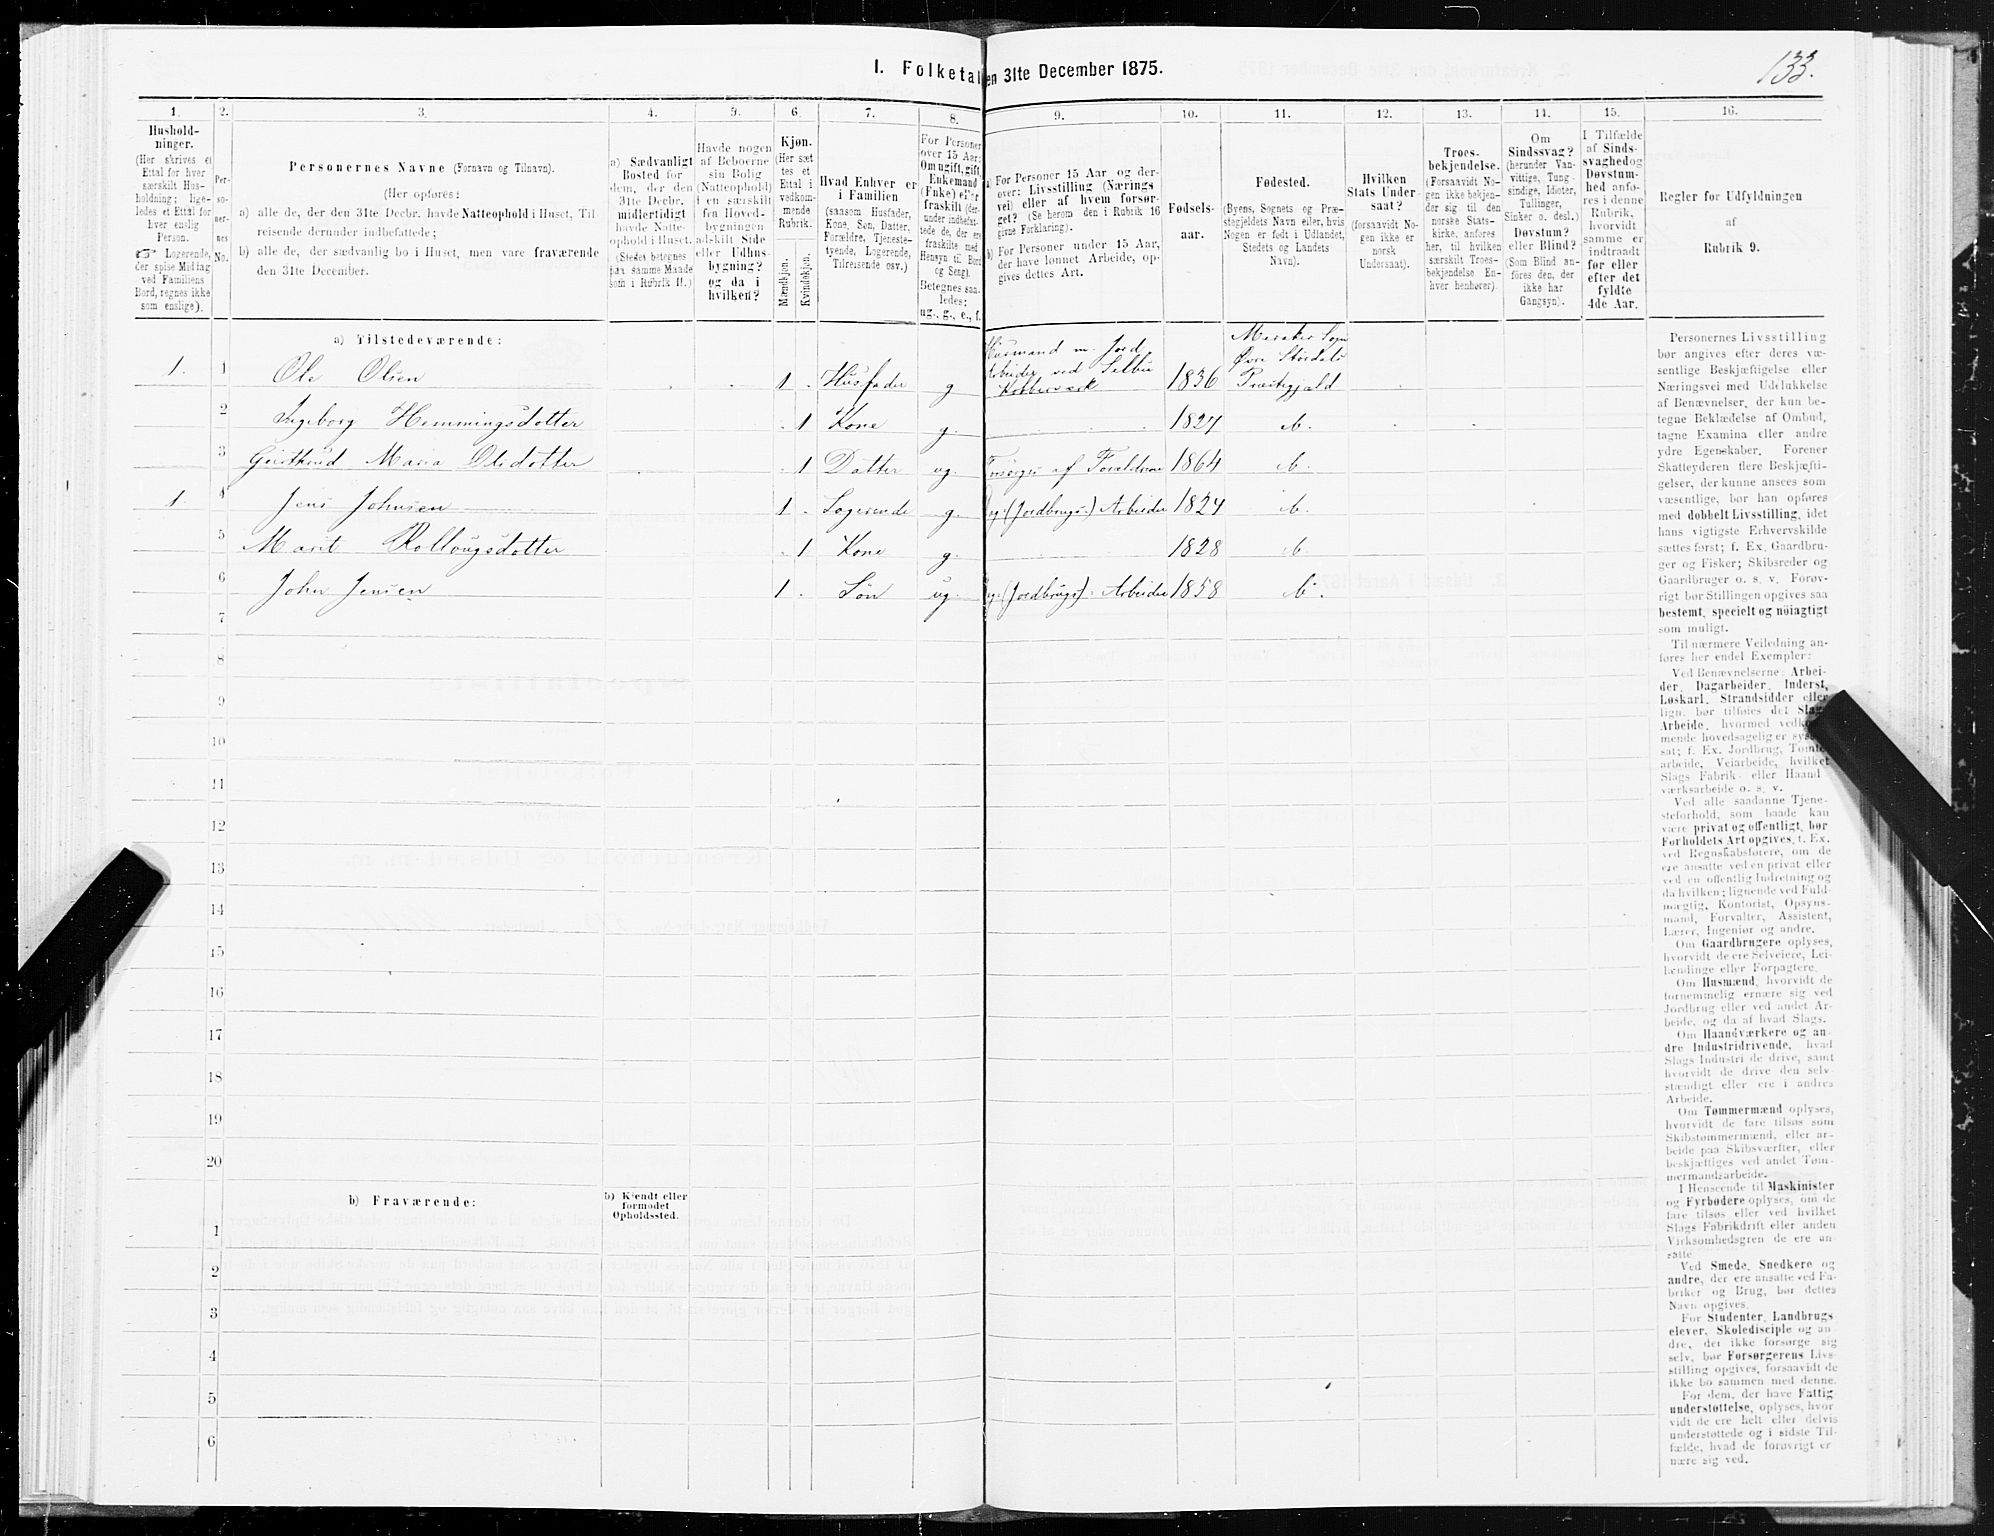 133.
I. Folketal
en 31te December 1875.
1.
2.
3.
4.
5.
6.
7.
8.
9.
10.
11.
12.
13.
14.
15.
16.
Hushold-
ninger.
(Her skrives et
Ettal for hver
særskilt Hus-
holdning; lige-
ledes et Ettal for
hver enslig
Person.
☞ Logerende,
der spise Middag
ved Familiens
Bord, regnes ikke
som enslige).
Per-
so-
ner-
nes
No.
Personernes Navne (Fornavn og Tilnavn).
(Her opføres:
a) alle de, der den 31te Decbr. havde Natteophold i Huset, Til
reisende derunder indbefattede;
b) alle de, der sædvanlig bo i Huset, men vare fraværende
den 31te December.
a) Sædvanligt
Bosted for
dem, der den
31te Decbr.
midlertidigt
havde Natte-
ophold i Huset.
(Stedet betegnes
paa samme Maade
som i Rubrik 11.)
Havde nogen
af Beboerne
sin Bolig
(Natteophold)
i en særskilt
fra Hoved-
bygningen
adskilt Side
eller Udhus-
bygning?
og da i
hvilken?
Kjøn.
(Her sæt
tes et
Ettal i
vedkom-
mende
Rubrik.
Mandkjøn.
Kvindekjøn.
Hvad Enhver er
i Familien
(saasom Husfader,
Kone, Søn, Datter,
Forældre, Tjeneste-
tyende, Logerende,
Tilreisende osv.)
For Personer
over 15 Aar:
Om ugift, gift,
Enkemand
(Enke) eller
fraskilt (der-
under indbefat-
tede de, der ere
fraskilte med
Hensyn til Bord
og Seng).
Betegnes saa-
ledes:
ug., g., e., f.
a) For Personer 15 Aar og der-
over: Livsstilling (Nærings
vei) eller af hvem forsør-
get? (Se herom den i Rubrik 16
givne Forklaring).
b) For Personer under 15 Aar,
der have lønnet Arbeide, op-
gives dettes Art.
Fødsels-
aar.
Fødested.
(Byens, Sognets og Præ-
stegjeldets Navn eller, hvis
Nogen er født i Udlandet,
Stedets og Landets
Navn).
Hvilken
Stats Under-
saat?
(forsaavidt No-
gen ikke er
norsk
Undersaat).
Troes-
bekjendelse.
(Forsaavidt No-
gen ikke bekjen-
der sig til den
norske Stats-
kirke, anføres
her, til hvilken
særskilt Troes-
bekjendelse En-
hver henhører).
Om
Sindssvag?
(herunder Van-
vittige, Tung-
sindige, Idioter,
Tullinger,
Sinker o. desl.)
Døvstum?
eller Blind?
(Som Blind an-
føres den, der
ikke har
Gangsyn).
I Tilfælde
af Sinds-
svaghed og
Døvstum-
hed anfø-
res i denne
Rubrik,
hvorvidt
samme er
indtraadt
før eller
efter det
fyldte
4de Aar.
Regler for Udfyldningen
af
Rubrik 9.
a) Tilstedeværende:
1. 1 Ole Olsen 1 . Husfader g Husmand m. Jord Arbeider ved Selbu Kobberværk 1836 Meraker Sogn Øvre Stördals Præstegjæld
2 Ingeborg Hemmingsdotter . 1 Kone g. 1827 do.
3 Geirthrud Maria Olsdotter . 1 Datter ug. Forsørges af Forældrene 1864 do.
1. 4 Jens Johnsen 1 . Logerende g. (Jordbrugs) Arbeider 1824 do.
5 Marit Rollougsdotter . 1 Kone g. 1828 do.
6 John Jensen 1 . Søn ug. (Jordbrugs) Arbeider 1858 do.
7
8
9
10
11
12
13
14
15
16
17
18
19
20
b) Fraværende:
b) Kjendt eller
formodet
Opholdssted.
1
2
3
4
5
6
Personernes Livsstilling
bør angives efter deres væ-
sentlige Beskjæftigelse eller
Næringsvei med Udelukkelse
af Benævnelser, der kun be-
tegne Beklædelse af Ombud,
tagne Examina eller andre
ydre Egenskaber. Forener
Skatteyderen flere Beskjæfti-
gelser, der kunne ansees som
væsentlige, bør han opføres
med dobbelt Livsstilling, idet
hans vigtigste Erhvervskilde
sættes først; f. Ex. Gaardbru-
ger og Fisker; Skibsreder og
Gaardbruger o. s. v. Forøv-
rigt bør Stillingen opgives saa
bestemt, specielt og nøiagtigt
som muligt.
Til nærmere Veiledning an-
føres her endel Exempler:
Ved Benævnelserne: Arbei-
der, Dagarbeider, Inderst,
Løskarl, Strandsidder eller
lign. bør tilføies det Slags
Arbeide, hvormed vedkom-
mende hovedsagelig er syssel-
sat; f. Ex. Jordbrug, Tomte-
arbeide, Veiarbeide, hvilket
Slags Fabrik- eller Haand-
værksarbeide o. s. v.
Ved alle saadanne Tjene-
steforhold, som baade kan
være privat og offentligt, bør
Forholdets Art opgives, t. Ex.
ved Regnskabsførere, om de
ere ansatte ved en privat eller
ved en offentlig Indretning og
da hvilken; lignende ved Fuld-
mægtig, Kontorist, Opsyns-
mand, Forvalter, Assistent,
Lærer, Ingeniør og andre.
Om Gaardbrugere oplyses,
hvorvidt de ere Selveiere, Lei-
lændinge eller Forpagtere.
Om Husmænd, hvorvidt de
fornemmelig ernære sig ved
Jordbrug eller ved andet Ar-
beide, og da af hvad Slags.
Om Haandværkere og an-
dre Industridrivende, hvad
Slags Industri de drive, samt
hvorvidt de drive den selv-
stændigt eller ere i andres
Arbeide.
Om Tømmermænd oplyses,
hvorvidt de fare tilsøs som
Skibstømmermænd, eller ar-
beide paa Skibsværfter, eller
beskjæftiges ved andet Tøm-
mermandsarbeide.
I Henseende til Maskinister
og Fyrbødere oplyses, om de
fare tilsøs eller ved hvilket
Slags Fabrikdrift eller anden
Virksomhedsgren de ere an-
satte.
Ved Smede, Snedkere og
andre, der ere ansatte ved Fa-
briker og Brug, bør dettes
Navn opgives.
For Studenter, Landbrugs
elever, Skoledisciple og an-
dre, der ikke forsørge sig
selv, bør Forsørgerens Livs-
stilling opgives, forsaavidt de
ikke bo sammen med denne.
For dem, der have Fattig-
understøttelse, oplyses, hvor
vidt de ere helt eller delvis
understøttede og i sidste Til-
fælde, hvad de forøvrigt er
nære sig ved.